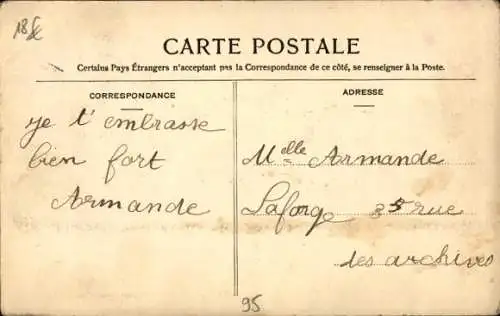 18€
CARTE POSTALE
Certains Pays Étrangers n'acceptant pas la Correspondance de ce côté, se renseigner à la Poste.
CORRESPONDANCE
je t'embrasse
bien fort
Armande
ADRESSE
Melle Armande
Laforge 35 rue
des archives
95